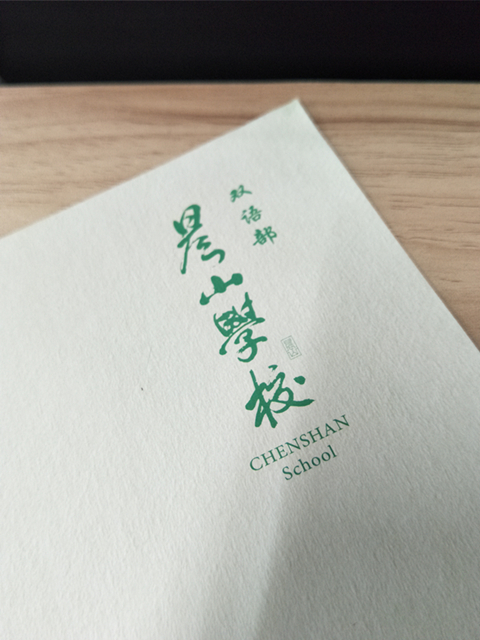 双语部
晨山學校
CHENSHAN
School